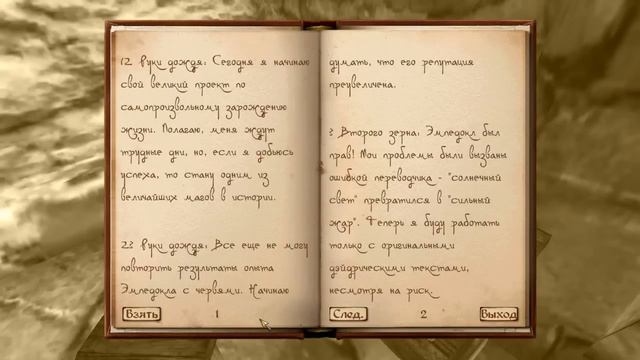 12 Руки дождя: Сегодня я начинаю
свой великий проект по
самопроизвольному зарождению
жизни. Полагаю, меня ждут
трудные дни, но, если я добьюсь
успеха, то стану одним из
величайших магов в истории.
23 Руки дождя: Все еще не могу
повторить результаты опыта
Эмпедокла с червями. Начинаю
думать, что его репутация
преувеличена.
3 Второго зерна: Эмпедокл был
прав! Мои проблемы были вызваны
ошибкой переводчика - "солнечный
свет" превратился в "сильный
жар". Теперь я буду работать
только с оригинальными
дэйдрическими текстами,
несмотря на риск.
Взять 1 След. 2 Выход